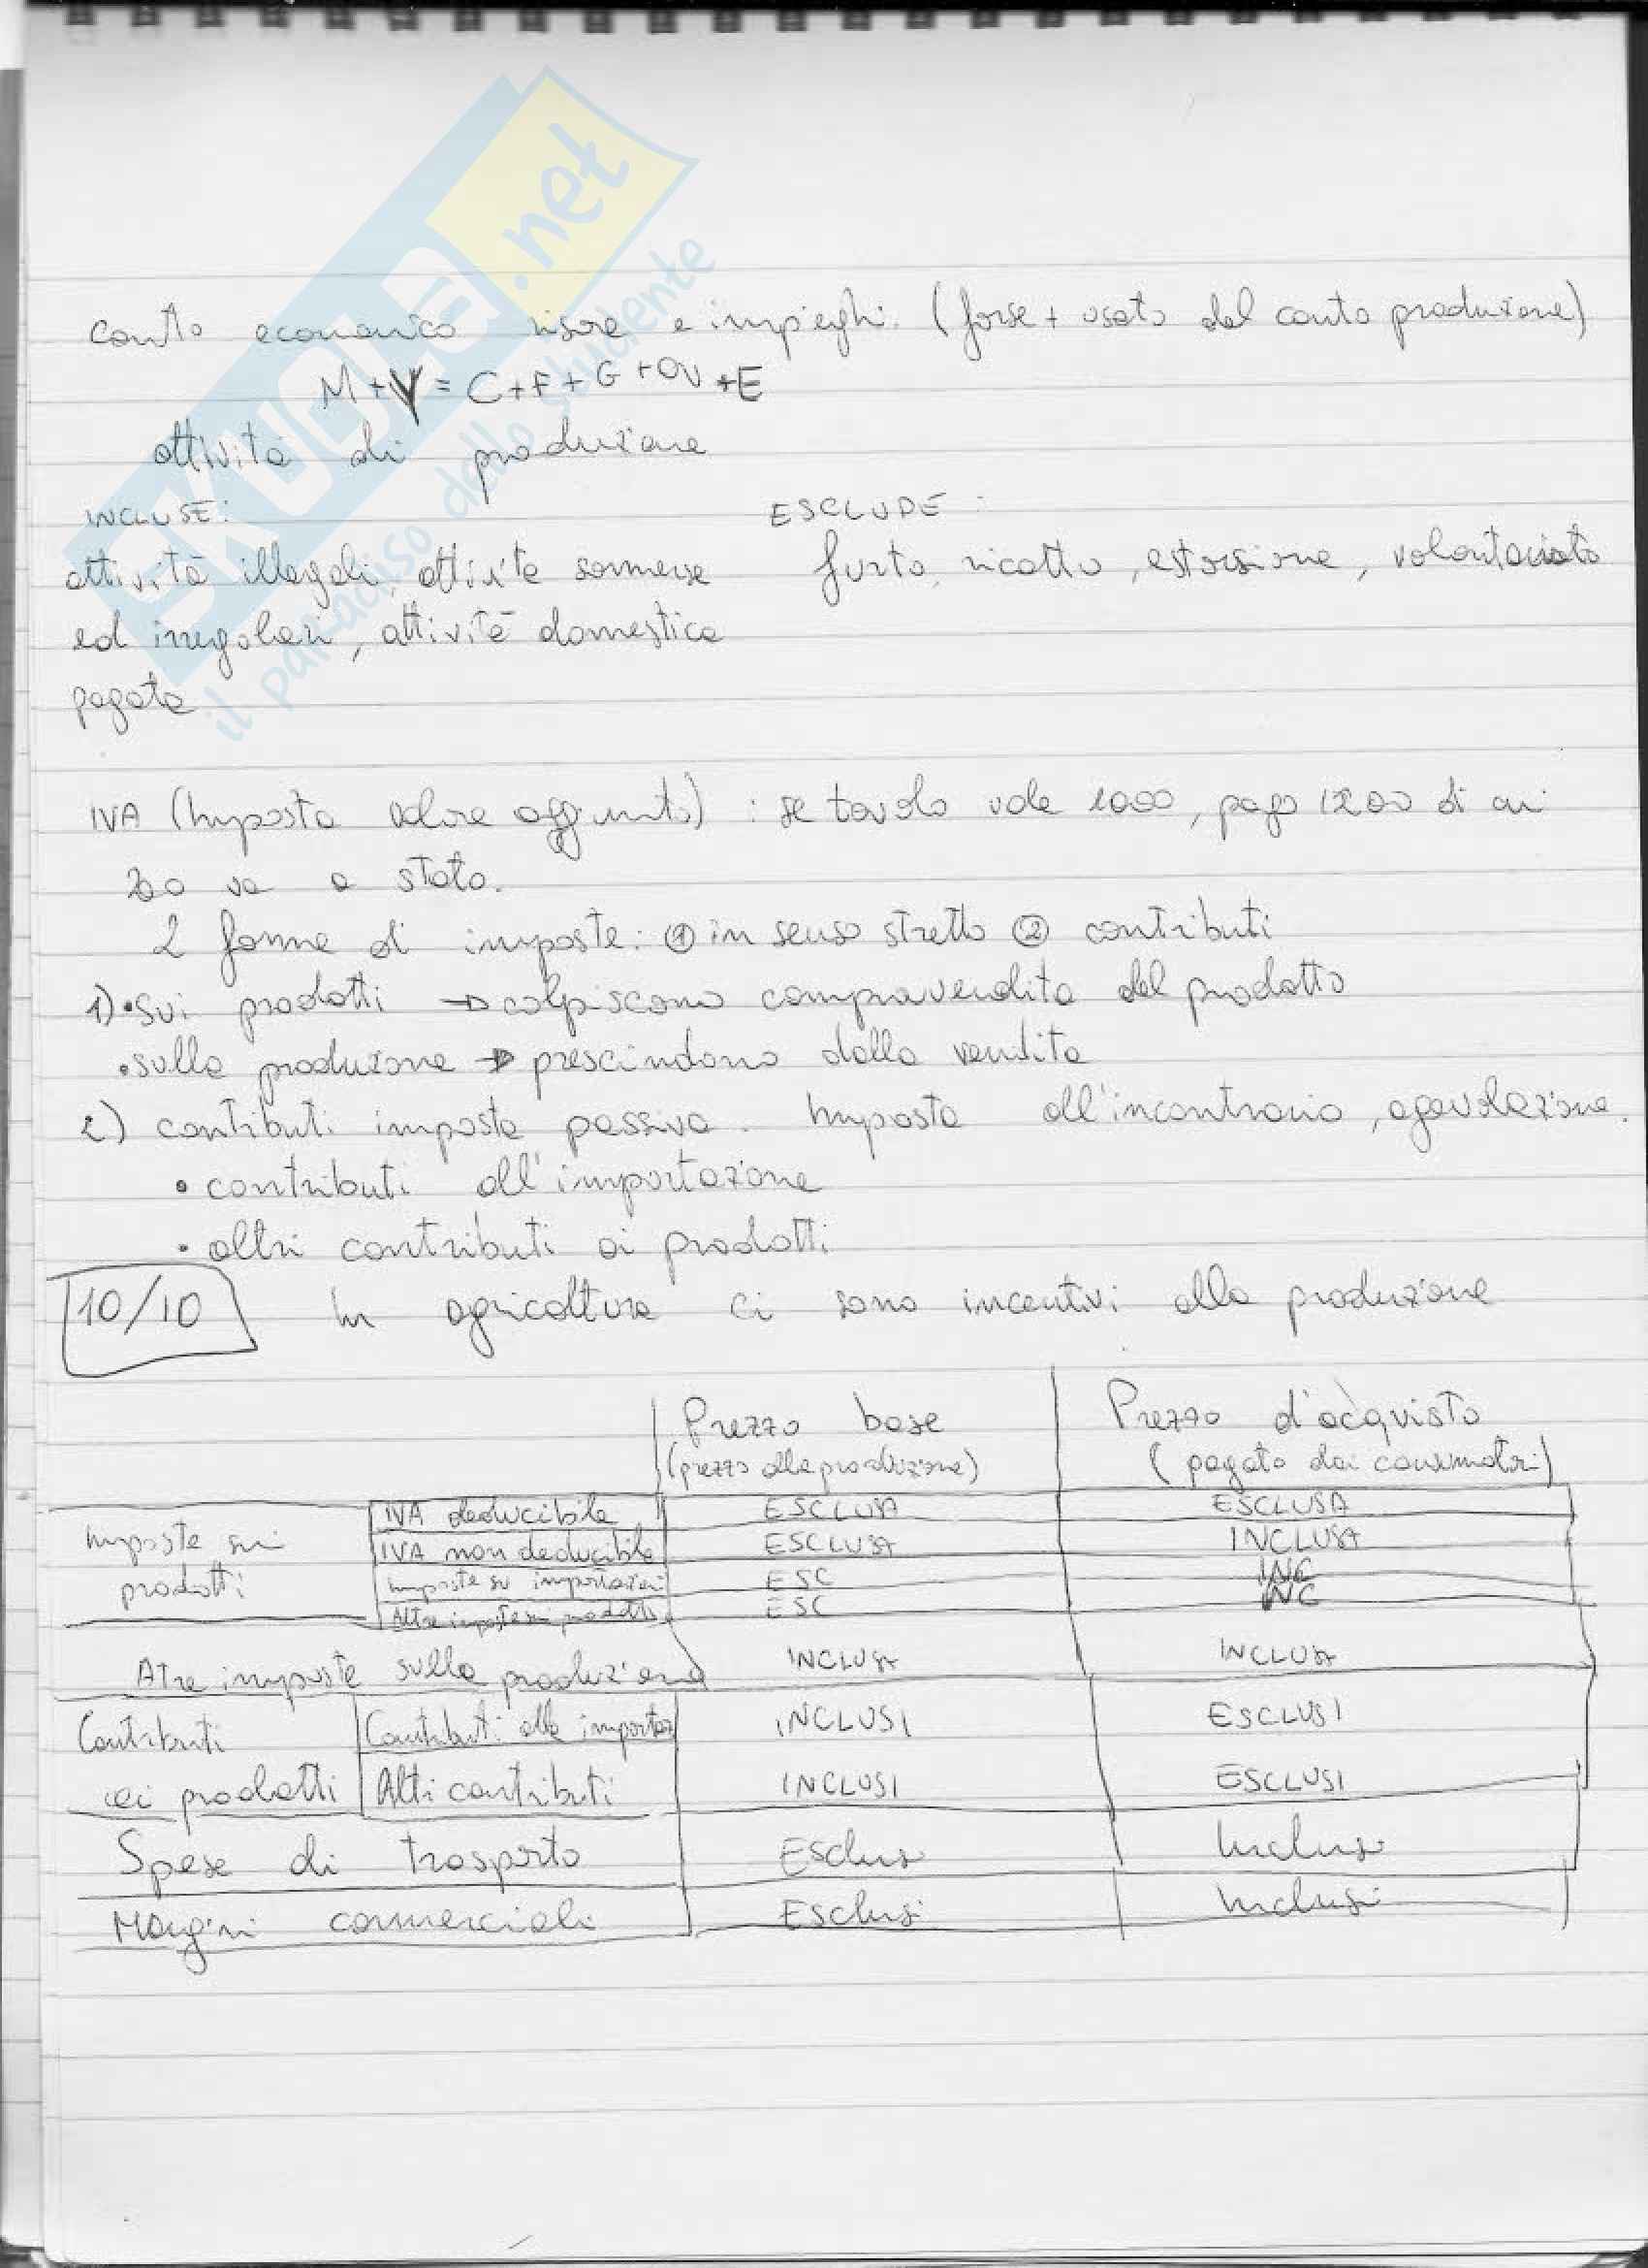 SKUOLA.net
il paradiso dello studente
conto economico risore e impieghi. (forse + usato del conto produzione)
M + Y = C + F + G + OV + E
attività di produzione
INCLUSE:
ESCLUDE:
attività illegali, attivite sommerse
furto, ricatto, estorsione, volontariato
ed irregolari, attività domestica
pagata
IVA (Imposta valore aggiunto) : se tavolo vale 1000, pago 1200 di cui
200 va a stato.
2 forme di imposte: ① in senso stretto ② contributi
1) • sui prodotti → colpiscono compravendita del prodotto
• sulla produzione → prescindono dalla vendita
2) contributi imposta passiva. Imposta all'incontrario, agevolazione.
• contributi all'importazione
• altri contributi ai prodotti
10/10 In agricoltura ci sono incentivi alla produzione
Prezzo base Prezzo d'acquisto
(prezzo alla produzione) (pagato dai consumatori)
Imposte sui prodotti
IVA deducibile ESCLUSA ESCLUSA
IVA non deducibile ESCLUSA INCLUSA
Imposte su importazioni ESC INC
Altre imposte sui prodotti ESC INC
Atre imposte sulla produzione INCLUSA INCLUSA
Contributi ai prodotti
Contributi alle importaz INCLUSI ESCLUSI
Alti contributi INCLUSI ESCLUSI
Spese di trasporto Escluse Incluse
Margini commerciali Esclusi Inclusi